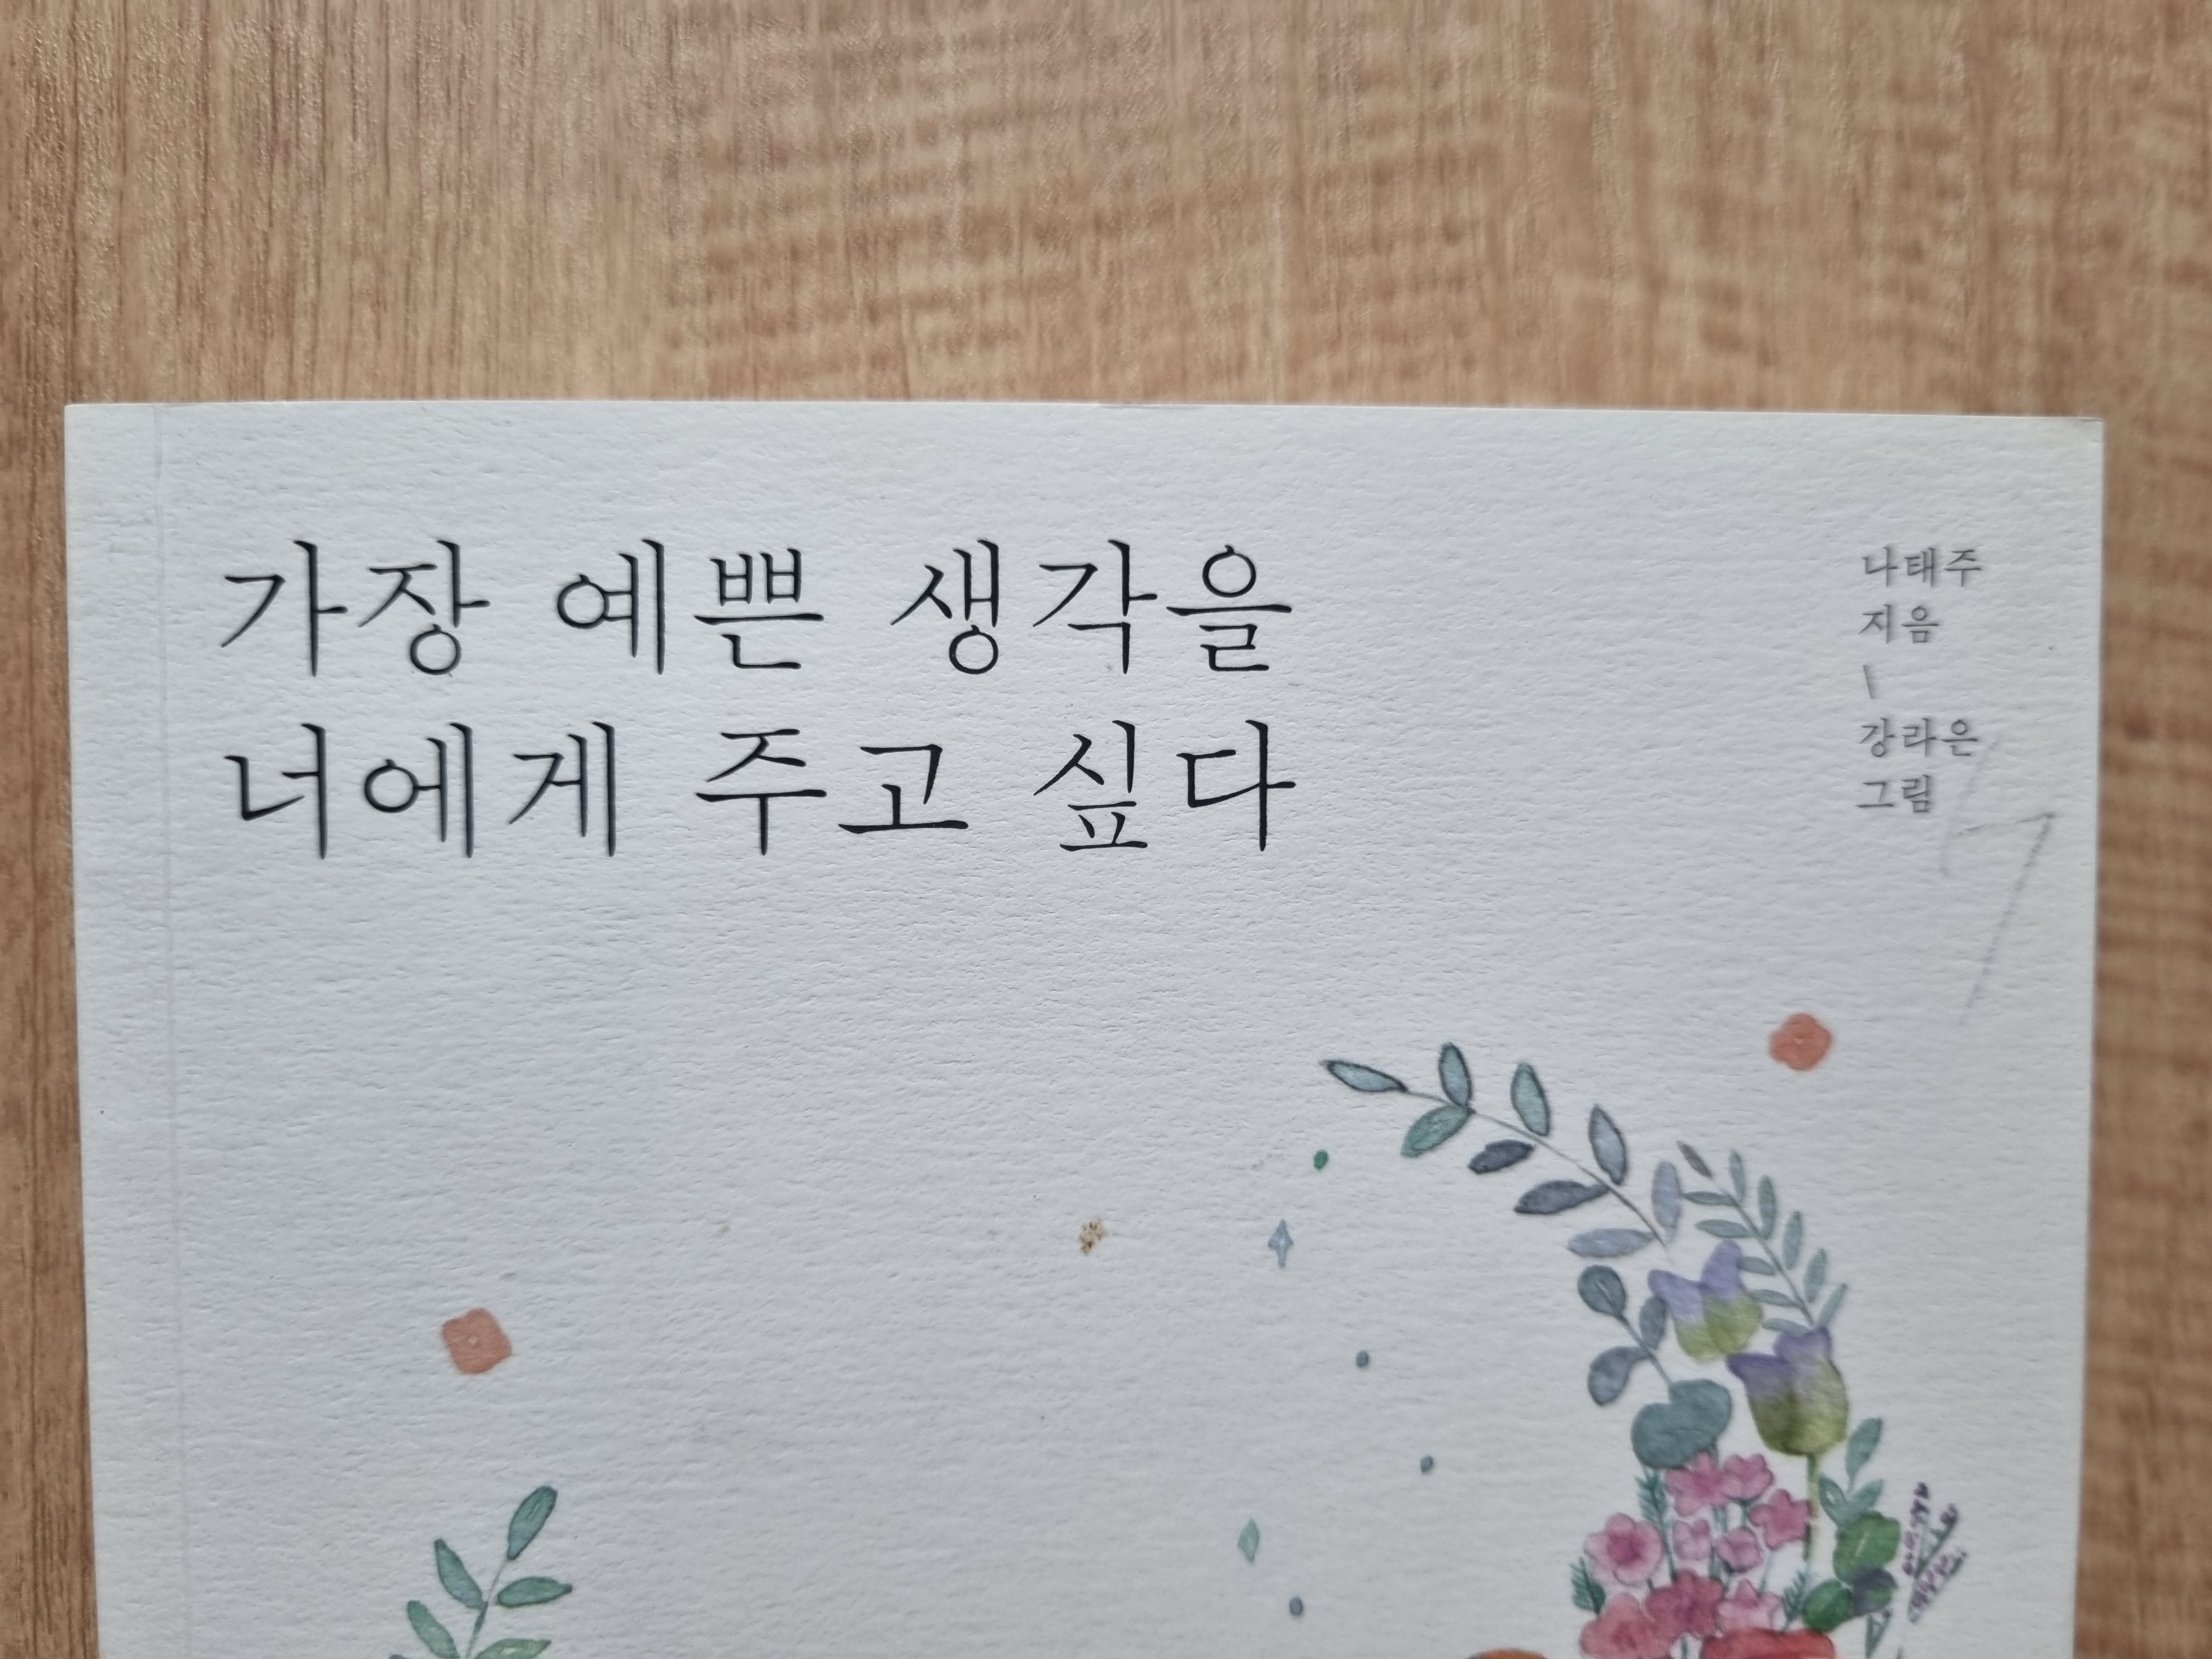 가장 예쁜 생각을
너에게 주고 싶다
나태주
지음
강라은
그림